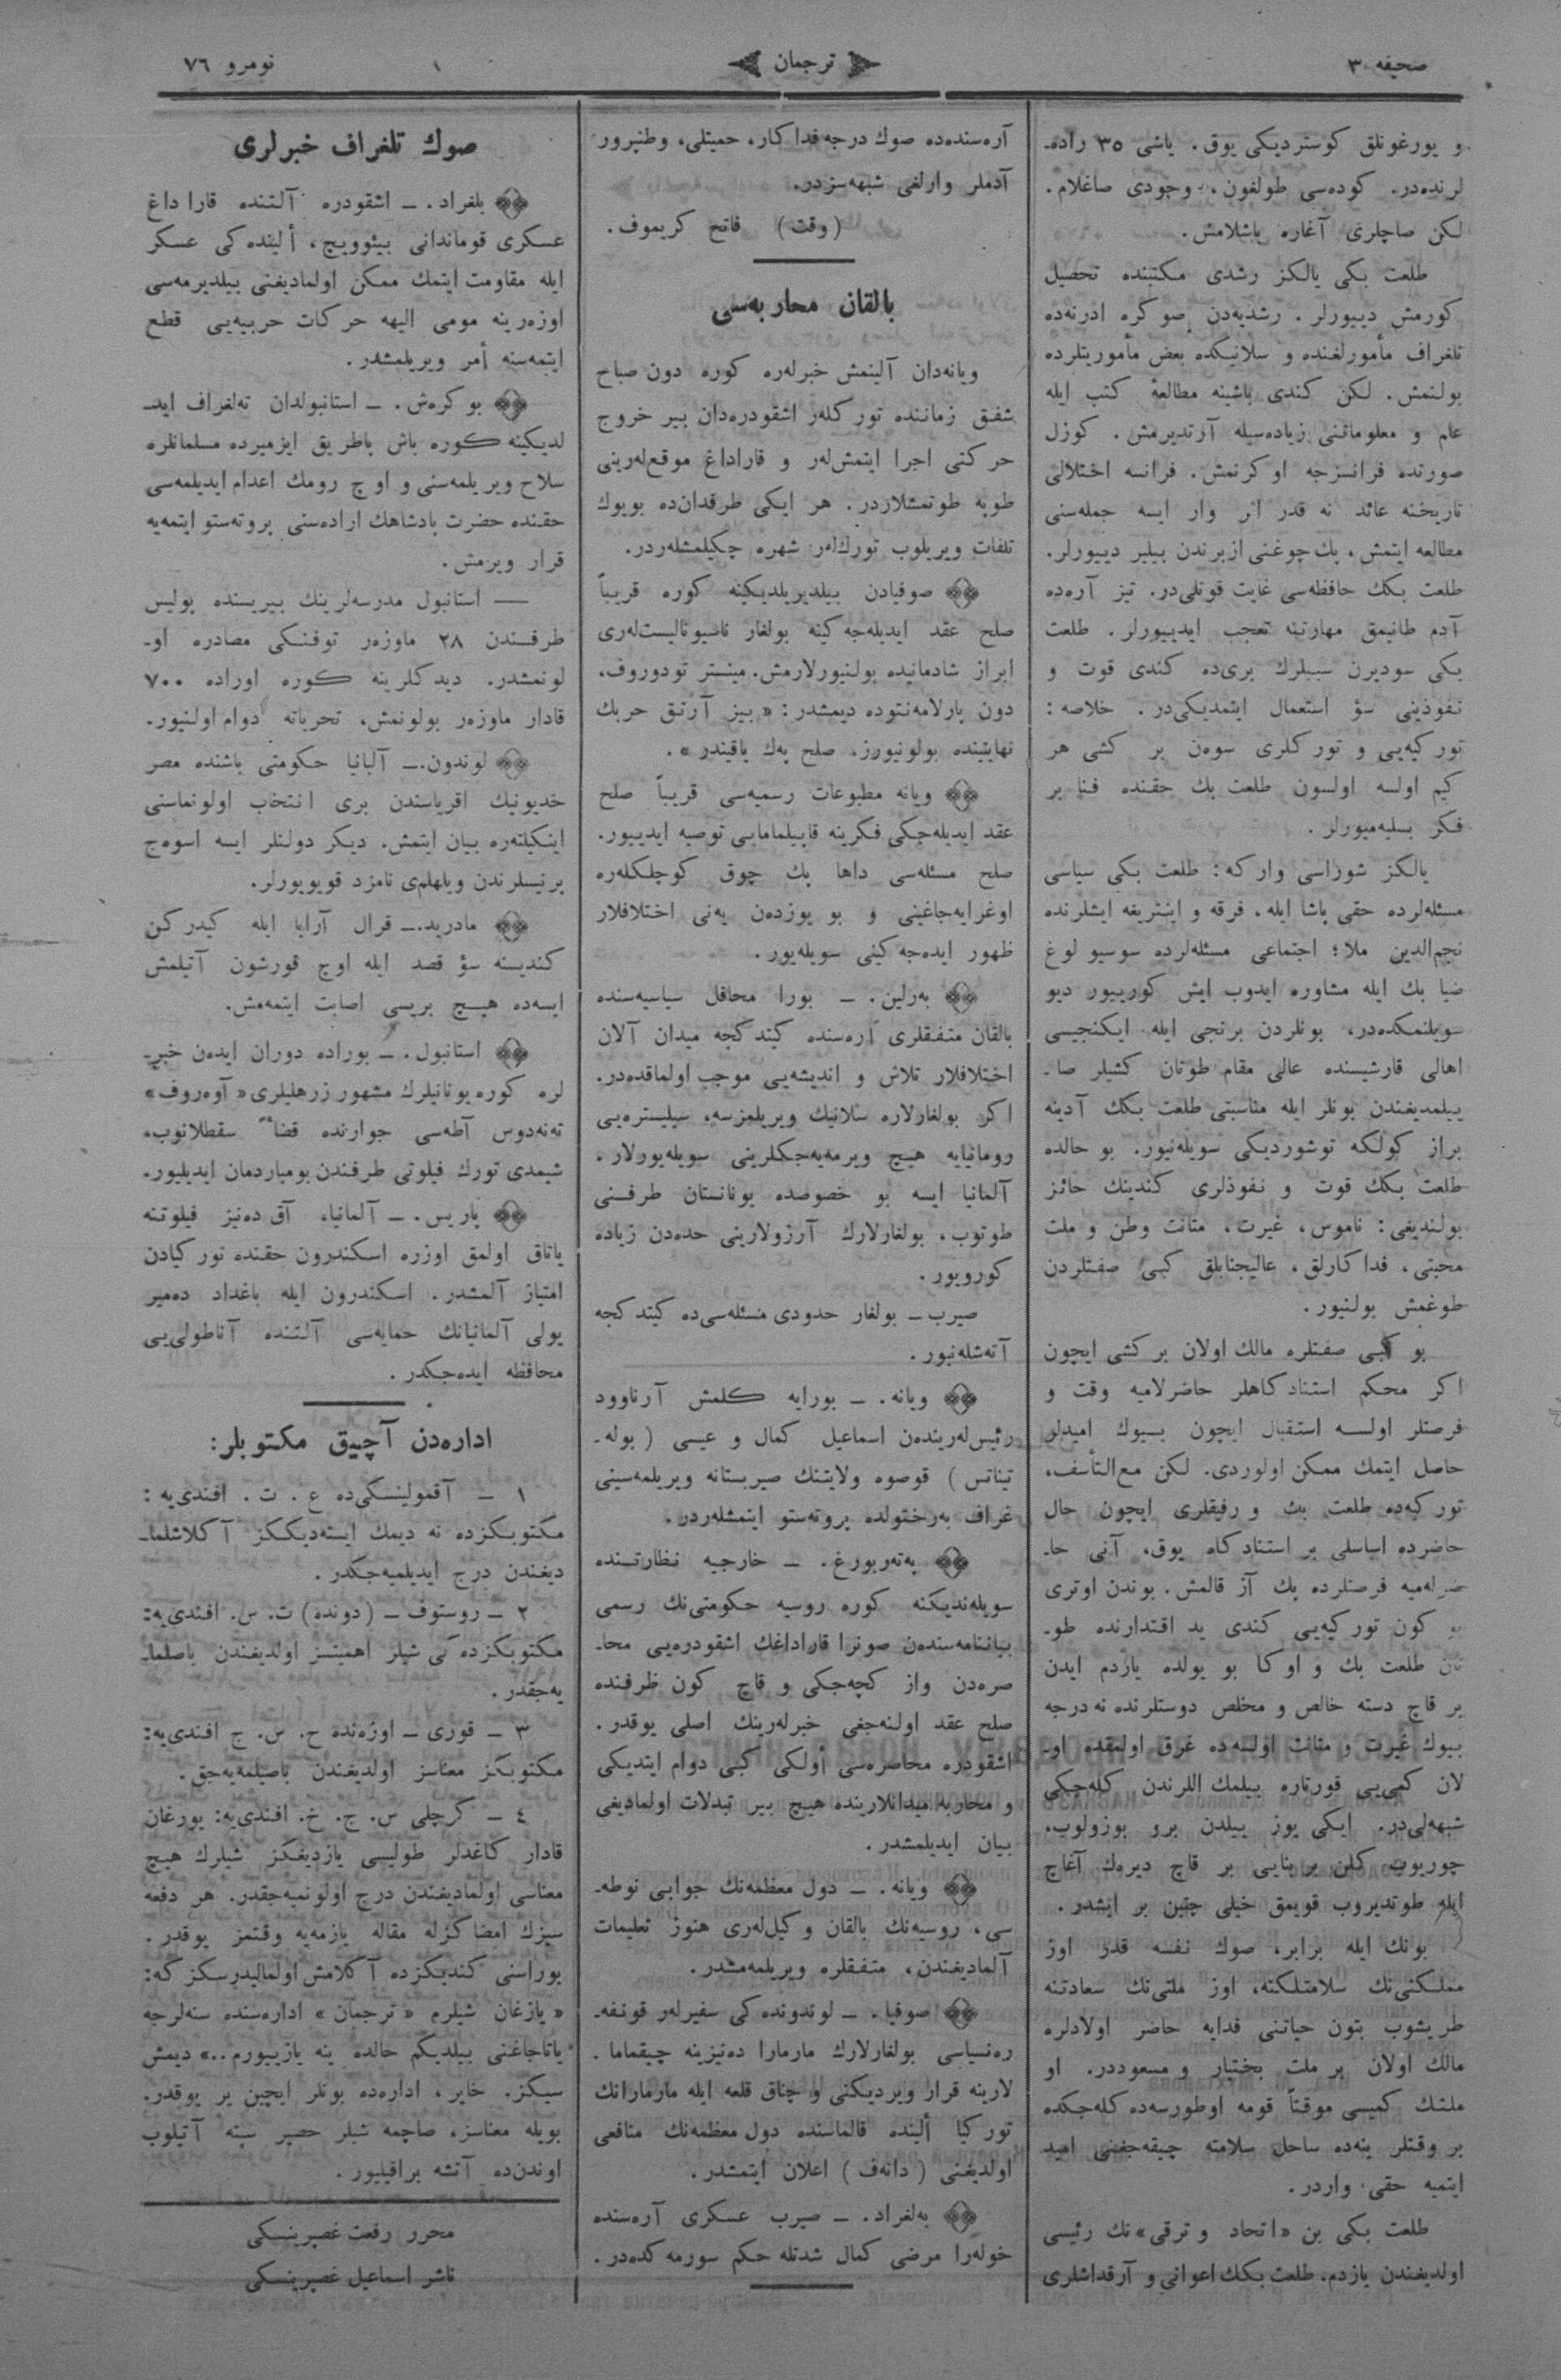 صحیفه ٣
ترجمان
نومرو ٧٦
و یورغونلق کوستردیکی یوق. یاشی ٣٥ راده‌ـ
لرنده‌در. کوده‌سی طولغون، وجودی صاغلام.
لکن صاچلری آغاره باشلامش.
طلعت بکی یالکز رشدی مکتبنده تحصیل
کورمش دییورلر. رشدیه‌دن صوکره ادرنه‌ده
تلغراف مأمورلغنده و سلانیکده بعض مأموریتلرده
بولنمش. لکن کندی باشینه مطالعهٔ کتب ایله
علم و معلوماتنی زیاده‌سیله آرتدیرمش. کوزل
صورتده فرانسزجه اوکرنمش. فرانسه اختلالی
تاریخنه عائد نه قدر اثر وار ایسه جمله‌سنی
مطالعه ایتمش، پك چوغنی ازبرندن بیلیر دییورلر.
طلعت بکك حافظه‌سی غایت قوتلی‌در. تیز آره‌ده
آدم طانیمق مهارتنه تعجب ایدییورلر. طلعت
بکی سودیرن سببلرك بری‌ده کندی قوت و
نفوذینی سؤ استعمال ایتمدیکی‌در. خلاصه:
تورکیه‌یی و تورکلری سوه‌ن بر کشی هر
کیم اولسه اولسون طلعت بك حقنده فنا بر
فکر بسلیه‌میورلر.
یالکز شوراسی وارکه: طلعت بکی سیاسی
مسئله‌لرده حقی پاشا ایله، فرقه و اینتریغه ایشلرنده
نجم‌الدین ملا؛ اجتماعی مسئله‌لرده سوسیولوغ
ضیا بك ایله مشاوره ایدوب ایش کورییور دیو
سویلنمکده‌در، بونلردن برنجی ایله ایکنجیسی
اهالی قارشیسنده عالی مقام طوتان کشیلر صاـ
ییلمدیغندن بونلر ایله مناسبتی طلعت بکك آدینه
براز کولکه توشوردیکی سویله‌نیور. بو حالده
طلعت بکك قوت و نفوذلری کندینك حائز
بولندیغی: ناموس، غیرت، متانت وطن و ملت
محبتی، فداکارلق، عالیجنابلق کبی صفتلردن
طوغمش بولنیور.
بو کبی صفتلره مالك اولان بر کشی ایچون
اکر محکم استنادکاهلر حاضرلامیه وقت و
فرصتلر اولسه استقبال ایچون بیوك امیدلر
حاصل ایتمك ممکن اولوردی. لکن مع‌التأسف،
تورکیه‌ده طلعت بك و رفیقلری ایچون حال
حاضرده اساسلی بر استنادکاه یوق، آنی حاـ
ضرله‌میه فرصتلرده پك آز قالمش. بوندن اوتری
بو کون تورکیه‌یی کندی ید اقتدارنده طوـ
تان طلعت بك و اوکا بو یولده یاردم ایدن
بر قاچ دسته خالص و مخلص دوستلرنده نه درجه
بیوك غیرت و متانت اولسه‌ده غرق اولمقده اوـ
لان کمی‌یی قورتاره بیلمك اللرندن کله‌جکی
شبهه‌لی‌در. ایکی یوز ییلدن برو بوزولوب،
چوریوب کلن بر بنایی بر قاچ دیره‌ك آغاچ
ایله طوتدیروب قویمق خیلی چتین بر ایشدر.
بونك ایله برابر، صوك نفسه قدر اوز
مملکتی‌نك سلامتلکنه، اوز ملتی‌نك سعادتنه
طریشوب بتون حیاتنی فدایه حاضر اولادلره
مالك اولان بر ملت بختیار و مسعوددر. او
ملتك کمیسی موقتاً قومه اوطورسه‌ده کله‌جکده
بر وقتلر ینه‌ده ساحل سلامته چیقه‌جغنی امید
ایتمیه حقی واردر.
طلعت بکی بن «اتحاد و ترقی» نك رئیسی
اولدیغندن یازدم. طلعت بکك اعوانی و آرقداشلری
آره‌سنده‌ده صوك درجه فداکار، حمیتلی، وطنپرور
آدملر وارلغی شبهه‌سزدر.
(وقت) فاتح کریموف.
بالقان محاربه‌سی
ویانه‌دان آلینمش خبرله‌ره کوره دون صباح
شفق زماننده تورکله‌ر اشقودره‌دان بیر خروج
حرکتی اجرا ایتمش‌له‌ر و قاراداغ موقع‌له‌رینی
طوپه طوتمشلاردر. هر ایکی طرفدان‌ده بویوك
تلفات ویریلوب تورك‌له‌ر شهره چکیلمشله‌ردر.
صوفیادن بیلدیریلدیکینه کوره قریباً
صلح عقد ایدیله‌جه‌کینه بولغار ناسیونالیست‌له‌ری
ابراز شادمانیده بولنیورلارمش. مینستر تودوروف،
دون پارلامه‌نتوده دیمشدر: «بیز آرتق حربك
نهایتینده بولونیورز، صلح په‌ك یاقیندر».
ویانه مطبوعات رسمیه‌سی قریباً صلح
عقد ایدیله‌جکی فکرینه قاپیلمامایی توصیه ایدییور.
صلح مسئله‌سی داها پك چوق کوچلکله‌ره
اوغرایه‌جاغینی و بو یوزده‌ن یه‌نی اختلافلار
ظهور ایده‌جه‌کینی سویله‌یور.
به‌رلین. ـ بورا محافل سیاسیه‌سنده
بالقان متفقلری آره‌سنده کیتدکجه میدان آلان
اختلافلار تلاش و اندیشه‌یی موجب اولماقده‌در.
اکر بولغارلاره سلانیك ویریلمزسه، سیلیستره‌یی
رومانیایه هیچ ویرمه‌یه‌جکلرینی سویله‌یورلار.
آلمانیا ایسه بو خصوصده یونانستان طرفنی
طوتوب، بولغارلارك آرزولارینی حده‌دن زیاده
کورویور.
صیرب ـ بولغار حدودی مسئله‌سی‌ده کیتدکجه
آته‌شله‌نیور.
ویانه. ـ بورایه کلمش آرناوود
رئیس‌له‌رینده‌ن اسماعیل کمال و عیسی (بوله‌ـ
تیناتس) قوصوه ولایتنك صیربستانه ویریلمه‌سینی
غراف به‌رختولده پروته‌ستو ایتمشله‌ردر.
په‌ته‌ربورغ. ـ خارجیه نظارتنده
سویله‌ندیکنه کوره روسیه حکومتی‌نك رسمی
بیاننامه‌سنده‌ن صونرا قاراداغك اشقودره‌یی محاـ
صره‌دن واز کچه‌جکی و قاچ کون ظرفنده
صلح عقد اولنه‌جغی خبرله‌رینك اصلی یوقدر.
اشقودره محاصره‌سی أولکی کبی دوام ایتدیکی
و محاربه میدانلارینده هیچ بیر تبدلات اولمادیغی
بیان ایدیلمشدر.
ویانه. ـ دول معظمه‌نك جوابی نوطه‌ـ
سی، روسیه‌نك بالقان وکیل‌له‌ری هنوز تعلیمات
آلمادیغندن، متفقلره ویریلمه‌مشدر.
صوفیا. ـ لوندونده‌کی سفیرله‌ر قونفه‌ـ
ره‌نسیاسی بولغارلارك مارمارا ده‌نیزینه چیقماماـ
لارینه قرار ویردیکنی و چناق قلعه ایله مارمارانك
تورکیا ألینده قالماسنده دول معظمه‌نك منافعی
اولدیغنی (دانه‌ف) اعلان ایتمشدر.
به‌لغراد. ـ صیرب عسکری آره‌سنده
خوله‌را مرضی کمال شدتله حکم سورمه‌کده‌در.
صوك تلغراف خبرلری
بلغراد. ـ اشقودره آلتنده قاراداغ
عسکری قوماندانی بیئوویچ، ألینده‌کی عسکر
ایله مقاومت ایتمك ممکن اولمادیغنی بیلدیرمه‌سی
اوزه‌رینه مومی الیهه حرکات حربیه‌یی قطع
ایتمه‌سنه أمر ویریلمشدر.
بوکره‌ش. ـ استانبولدان ته‌لغراف ایدـ
لدیکینه کوره باش پاطریق ایزمیرده مسلمانلره
سلاح ویریلمه‌سنی و اوچ رومك اعدام ایدیلمه‌سی
حقنده حضرت پادشاهك اراده‌سنی پروته‌ستو ایتمه‌یه
قرار ویرمش.
— استانبول مدرسه‌لرینك بیریسنده پولیس
طرفندن ٢٨ ماوزه‌ر توفنکی مصادره اوـ
لونمشدر. دیدکلرینه کوره اوراده ٧٠٠
قادار ماوزه‌ر بولونمش، تحریاته دوام اولنیور.
لوندون.ـ آلبانیا حکومتی باشنده مصر
خدیونیك اقریاسندن بری انتخاب اولونماسنی
اینکیلته‌ره بیان ایتمش. دیکر دولتلر ایسه اسوه‌ج
پرنیسلرندن ویلهلمی نامزد قویویورلر.
مادرید.ـ قرال آرابا ایله کیدرکن
کندیسنه سؤ قصد ایله اوچ قورشون آتیلمش
ایسه‌ده هیچ بریسی اصابت ایتمه‌مش.
استانبول. ـ بوراده دوران ایده‌ن خبرـ
لره کوره یونانیلرك مشهور زرهلیلری «آوه‌روف»
ته‌نه‌دوس آطه‌سی جوارنده قضاءً سقطلانوب،
شیمدی تورك فیلوتی طرفندن بومباردمان ایدیلیور.
پاریس. ـ آلمانیا، آق ده‌نیز فیلوتنه
یاتاق اولمق اوزره اسکندرون حقنده تورکیادن
امتیاز آلمشدر. اسکندرون ایله باغداد ده‌میر
یولی آلمانیانك حمایه‌سی آلتنده آناطولی‌یی
محافظه ایده‌جکدر.
اداره‌دن آچیق مکتوبلر:
١ ـ آقمولینسکی‌ده ع. ت. افندی‌یه:
مکتوبکزده نه دیمك ایسته‌دیککز آکلاشلماـ
دیغندن درج ایدیلمیه‌جکدر.
٢ ـ روستوف ـ (دونده) ت. س. افندی‌یه:
مکتوبکزده‌کی شیلر اهمیتسز اولدیغندن باصلماـ
یه‌جقدر.
٣ ـ قوری ـ اوزه‌نده ح. س. ج افندی‌یه:
مکتوبکز معناسز اولدیغندن باصیلمه‌یه‌جق.
٤ ـ کرچلی س. ج. خ. افندی‌یه: یورغان
قادار کاغدلر طولیسی یازدیغکز شیلرك هیچ
معناسی اولمادیغندن درج اولونمیه‌جقدر. هر دفعه
سیزك امضاکزله مقاله یازمه‌یه وقتمز یوقدر.
بوراسنی کندیکزده آکلامش اولمالیدرسکز که:
«یازغان شیلرم «ترجمان» اداره‌سنده سنه‌لرجه
یاتاجاغنی بیلدیکم حالده ینه یازییورم..» دیمش
سیکز. خایر، اداره‌ده بونلر ایچین یر یوقدر.
بویله معناسز، صاچمه شیلر حصیر سپته آتیلوب
اوندن‌ده آتشه براقیلیور.
محرر رفعت غصپرینسکی
ناشر اسماعیل غصپرینسکی